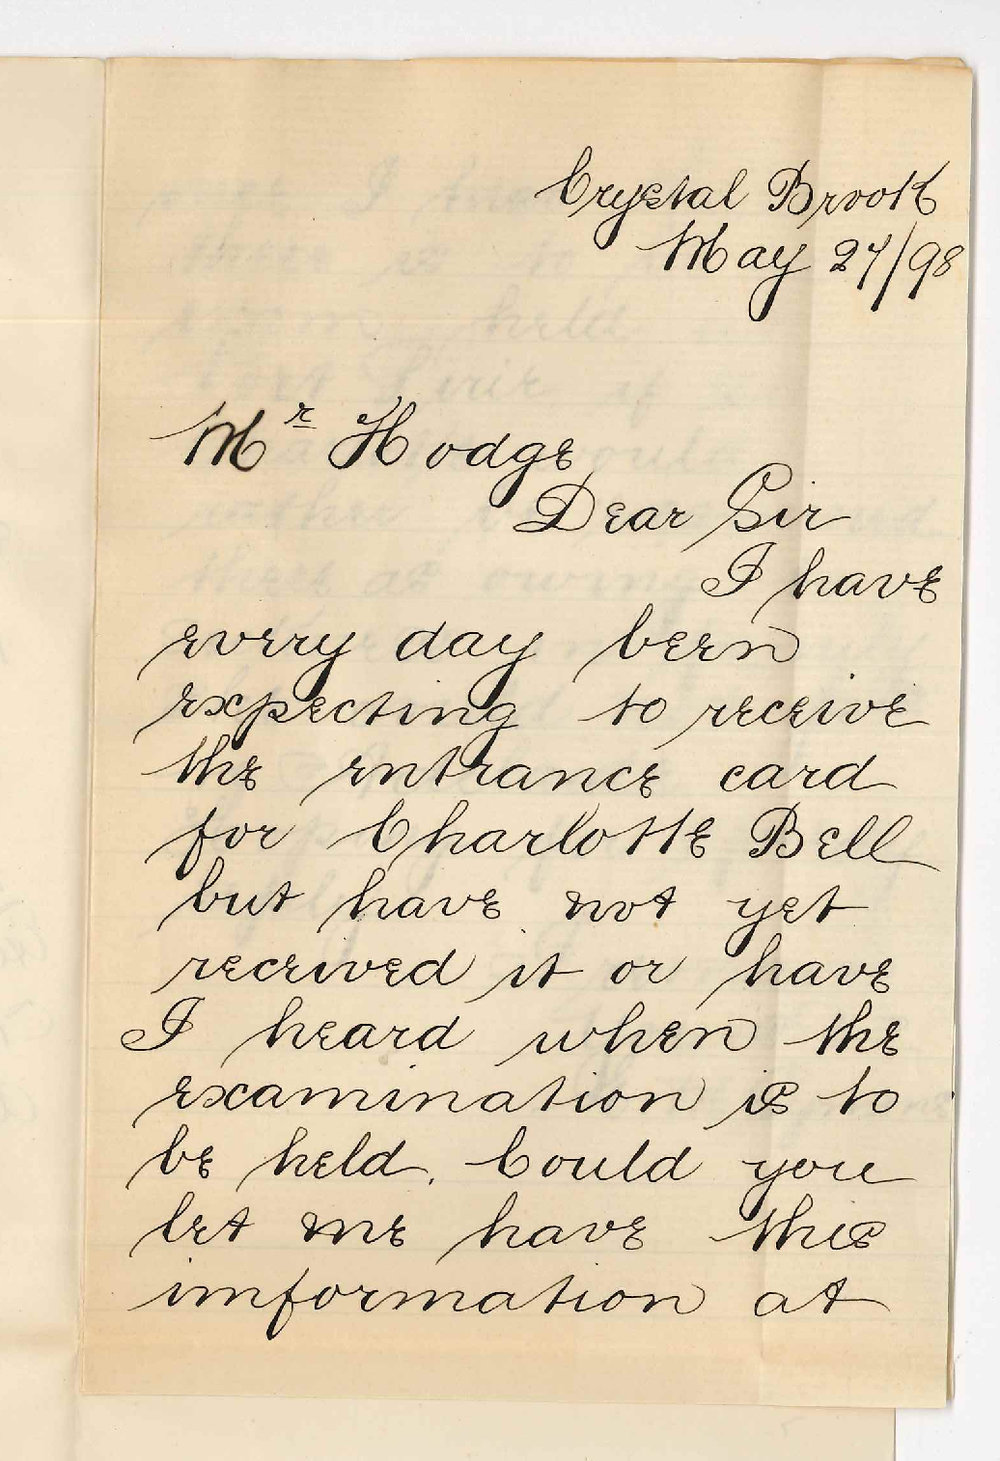 Crystal Brook
May 27/98
Mr Hodge
Dear Sir
I have
every day been
expecting to receive
the entrance card
for Charlotte Bell
but have not yet
received it or have
I heard when the
examination is to
be held. Could you
let me have this
imformation at